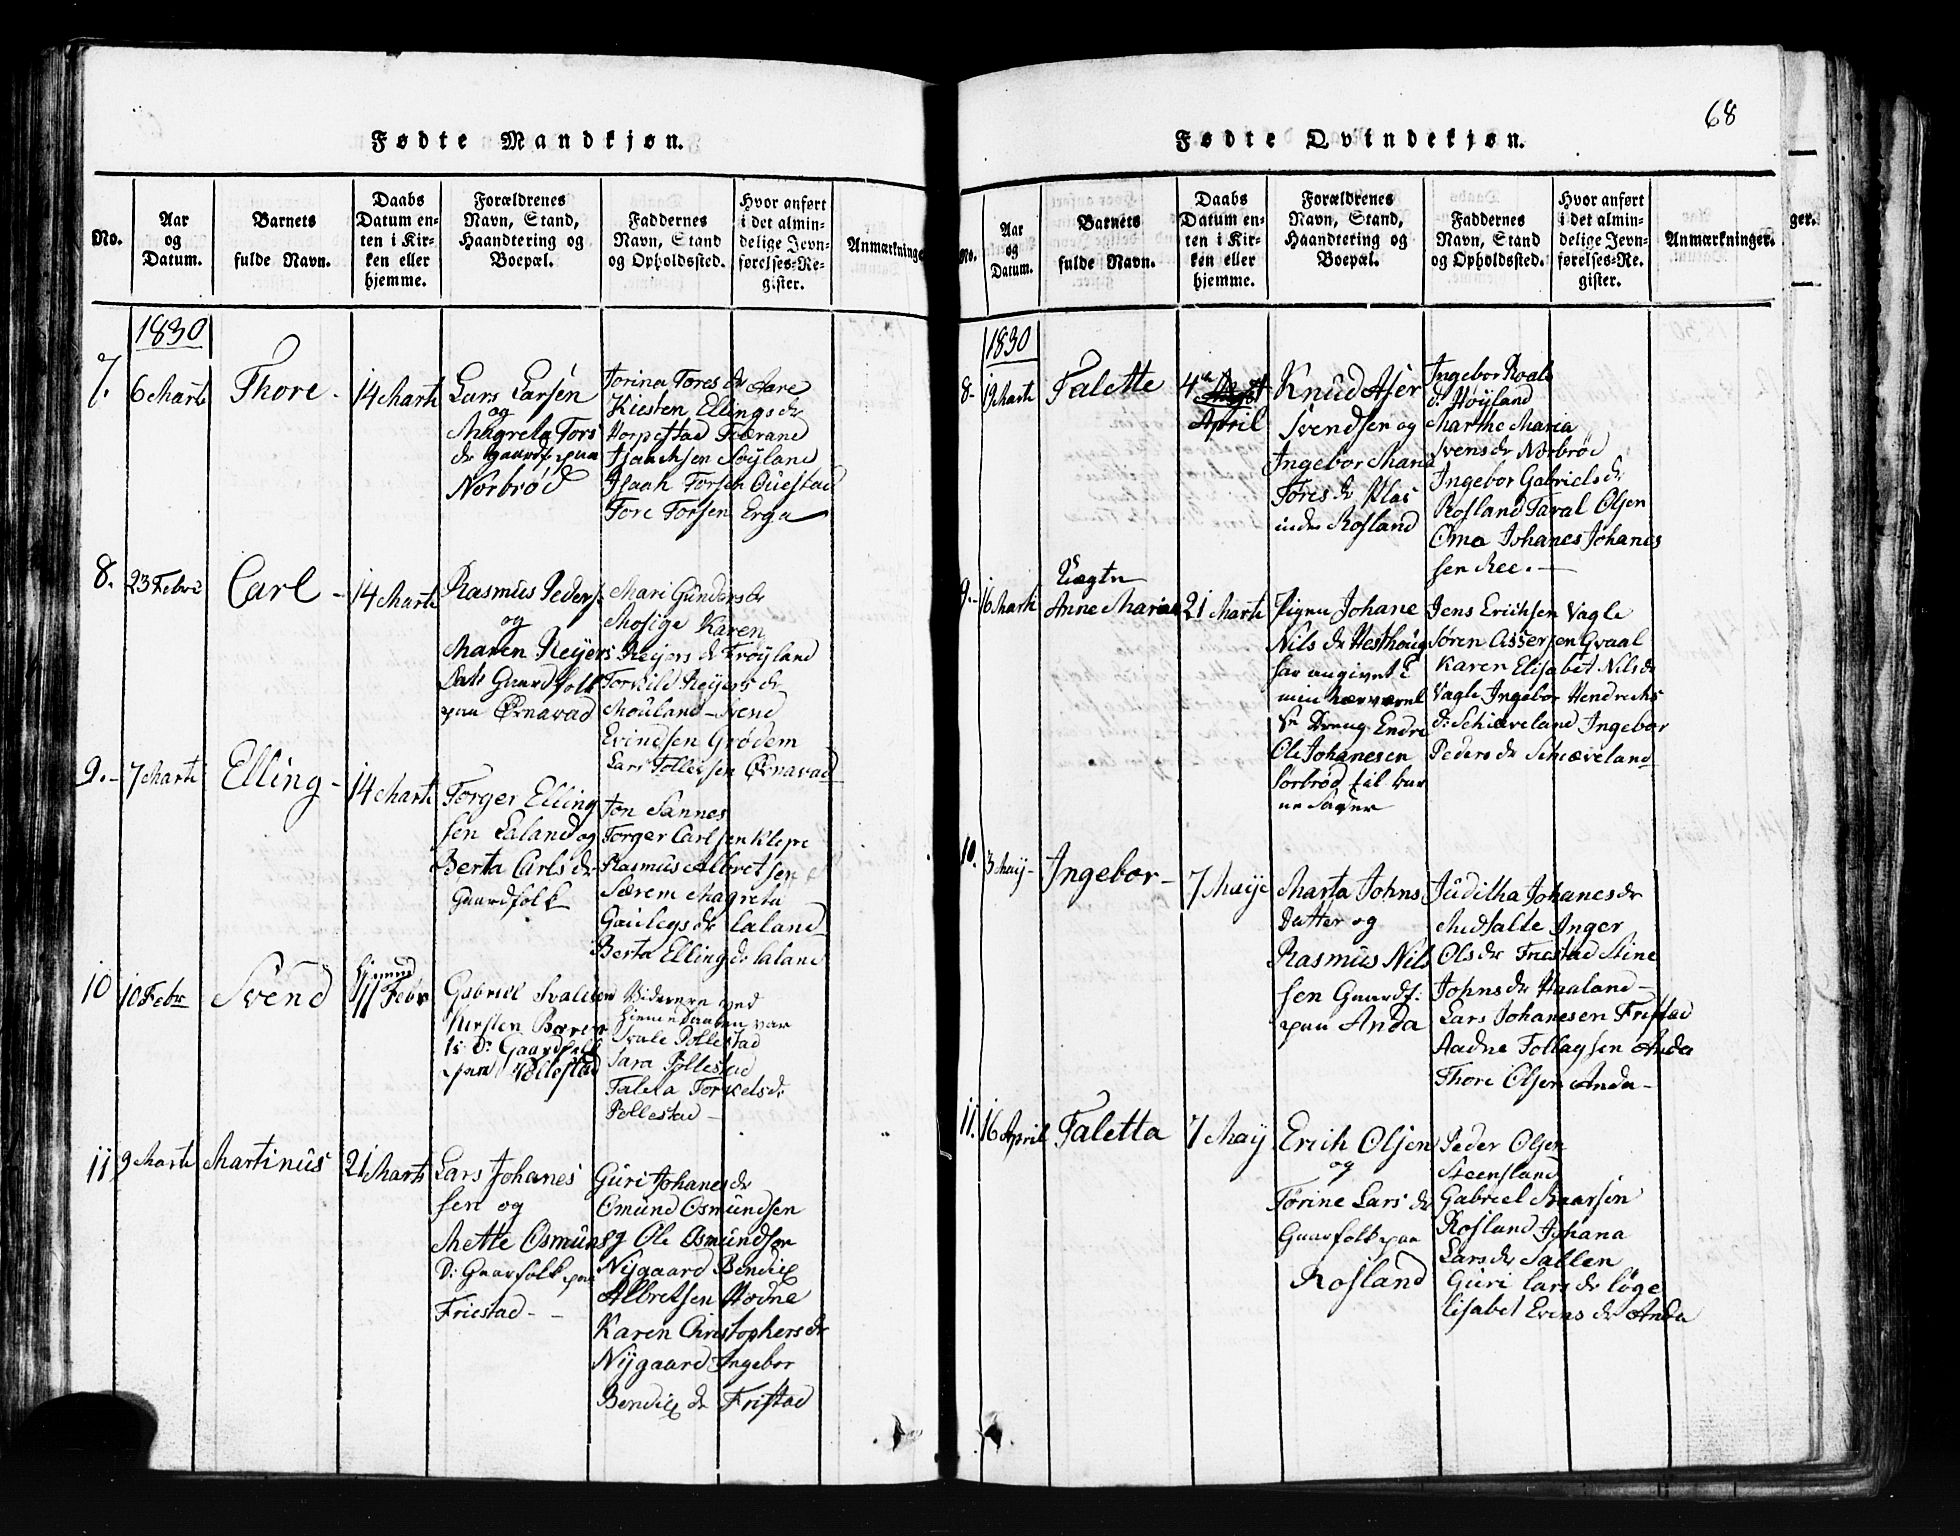 68
Fødte Mandkjøn.
No.
Aar
og
Datum.
Barnets
fulde Navn.
Daabs
Datum en-
ten i Kir-
ken eller
hjemme.
Forældrenes
Navn, Stand,
Haandtering og
Boepæl.
Faddernes
Navn, Stand
og Opholdssted.
Hvor anført
i det almin-
delige Jevn-
førelses-Re-
gister.
Anmærkninge
1830
7.
6 Marti
Thore -
14 Marti
Lars Larsen
og
Magreta Tors
dr paa
Norbrød
Torina Tores dr Aare
Kiesten Ellings dr
Horpestad
Isaachsen Søyland
Isaak Torsen Questad
Tore Torsen Erga
8.
23 Febri
Carl -
14 Marti
Rasmus Peders
og
Maren Reijers
Datr Gaardfolk
paa Ørnavad
Mari Gunders dr
Mosige Karen
Reijers dr Frøyland
Torkild Reijers dr
Mouland - Svend
Evindsen Grødem
Lars Tollefsen Ørnavad
9. -
7 Marti
Elling -
14 Marti
Torger Elling
sen Laland og
Berta Carls dr
Gaardfolk
Jon Sannes
Torger Carlsen Klepe
Rasmus Albretsen
Særem Magreta
dr Laland
Berta Elling dr Laland
10
10 Febr
Svend
11 Febr
Gabriel Svalesen
Kirsten
Dr Gaardfolk
paa Pollestad
Viderere ved
hjemmedaaben var
Svale Pollestad
Sara Pollestad
Talela Torkels dr
Pollestad -
11
9 Marti
Martinus
21 Marti
Lars Johanes
sen og
Mette Osmuns
D: Gaarfolk paa
Friestad - -
Guri Johanes dr
Omund Osmundsen
og Ole Osmundsen
Nijgaard Bendix
Albretsen Hodne
Karen Christophers dr
Nijgaard Ingebor
Bendix dr Fristad
Fødte Qvindekjøn.
No.
Aar
og
Datum.
Barnets
fulde Navn.
Daabs
Datum en-
ten i Kir-
ken eller
hjemme.
Forældrenes
Navn, Stand,
Haandtering og
Boepæl.
Faddernes
Navn, Stand
og Opholdssted.
Hvor anført
i det almin-
delige Jevn-
førelses-Re-
gister.
Anmærkninger.
ger.
1830
8-
19 Marti
Talette
4de
April
Knud Aser
Svendsen og
Ingebor Maria
Tores dr Plas
inder Rosland
Ingebor Roals
d: Høyland
Marthe Maria
Svens dr Norbrød
Ingebor Gabriels dr
Rosland Taral Olsen
Oma Johanes Johanes
sen Ree. -
9. -
16 Marti
Uægte
Anne Maria
21 Marti
Pigen Johane
Nils dr Hesthoug
far angivet i
min nærværel
se Dreng Endre
Ole Johanesen
Sorbrød til bar
ne Fader
Jens Erichsen Vagle
Søren Assersen Qvaal
Karen Elisabet Nils dr
Vagle Ingebor Hendrichs
d: Schiæveland Ingebor
Peders dr Schiæveland
10.
3 Maij -
Ingebor -
7 Maije
Marta Johns
Datter og
Rasmus Nils
sen Gaardf:
paa Anda
Juditha Johanes dr
Midsalte Inger
Ols dr Friestad Stine
Johns dr Haaland -
Lars Johanesen Fristad
Aadne Tollagsen Anda
Thore Olsen Anda -
11.
16 April
Taletta
7 Maij
Erich Olsen
og
Torine Lars dr
Gaarfolk paa
Rosland
Peder Olsen
Steensland
Gabriel Baarsen
Rosland Johana
Lars dr Salten
Guri Lars dr Løge
Lisabet Evens dr Anda